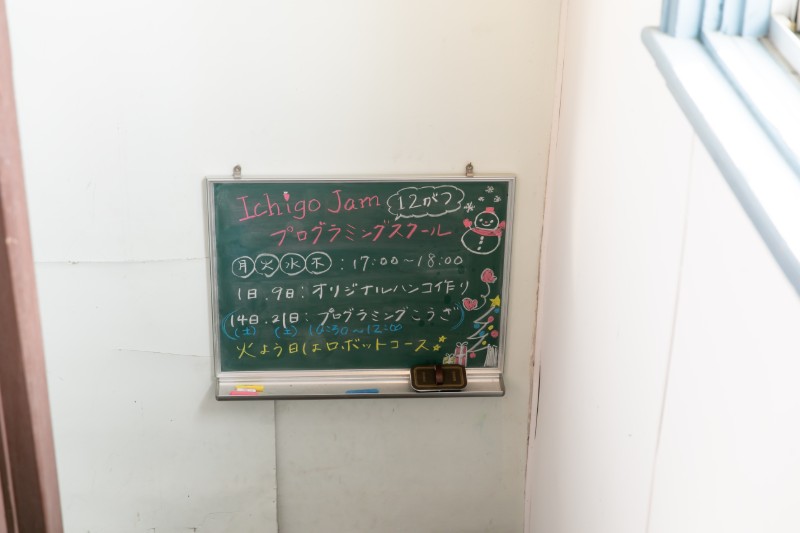 Ichigo Jam 12がつ
プログラミングスクール
月 火 水 木 : 17:00〜18:00
1日.9日:オリジナルハンコ作り
14日.21日:プログラミングこうざ
(土) (土) 10:30〜12:00
火よう日はロボットコース